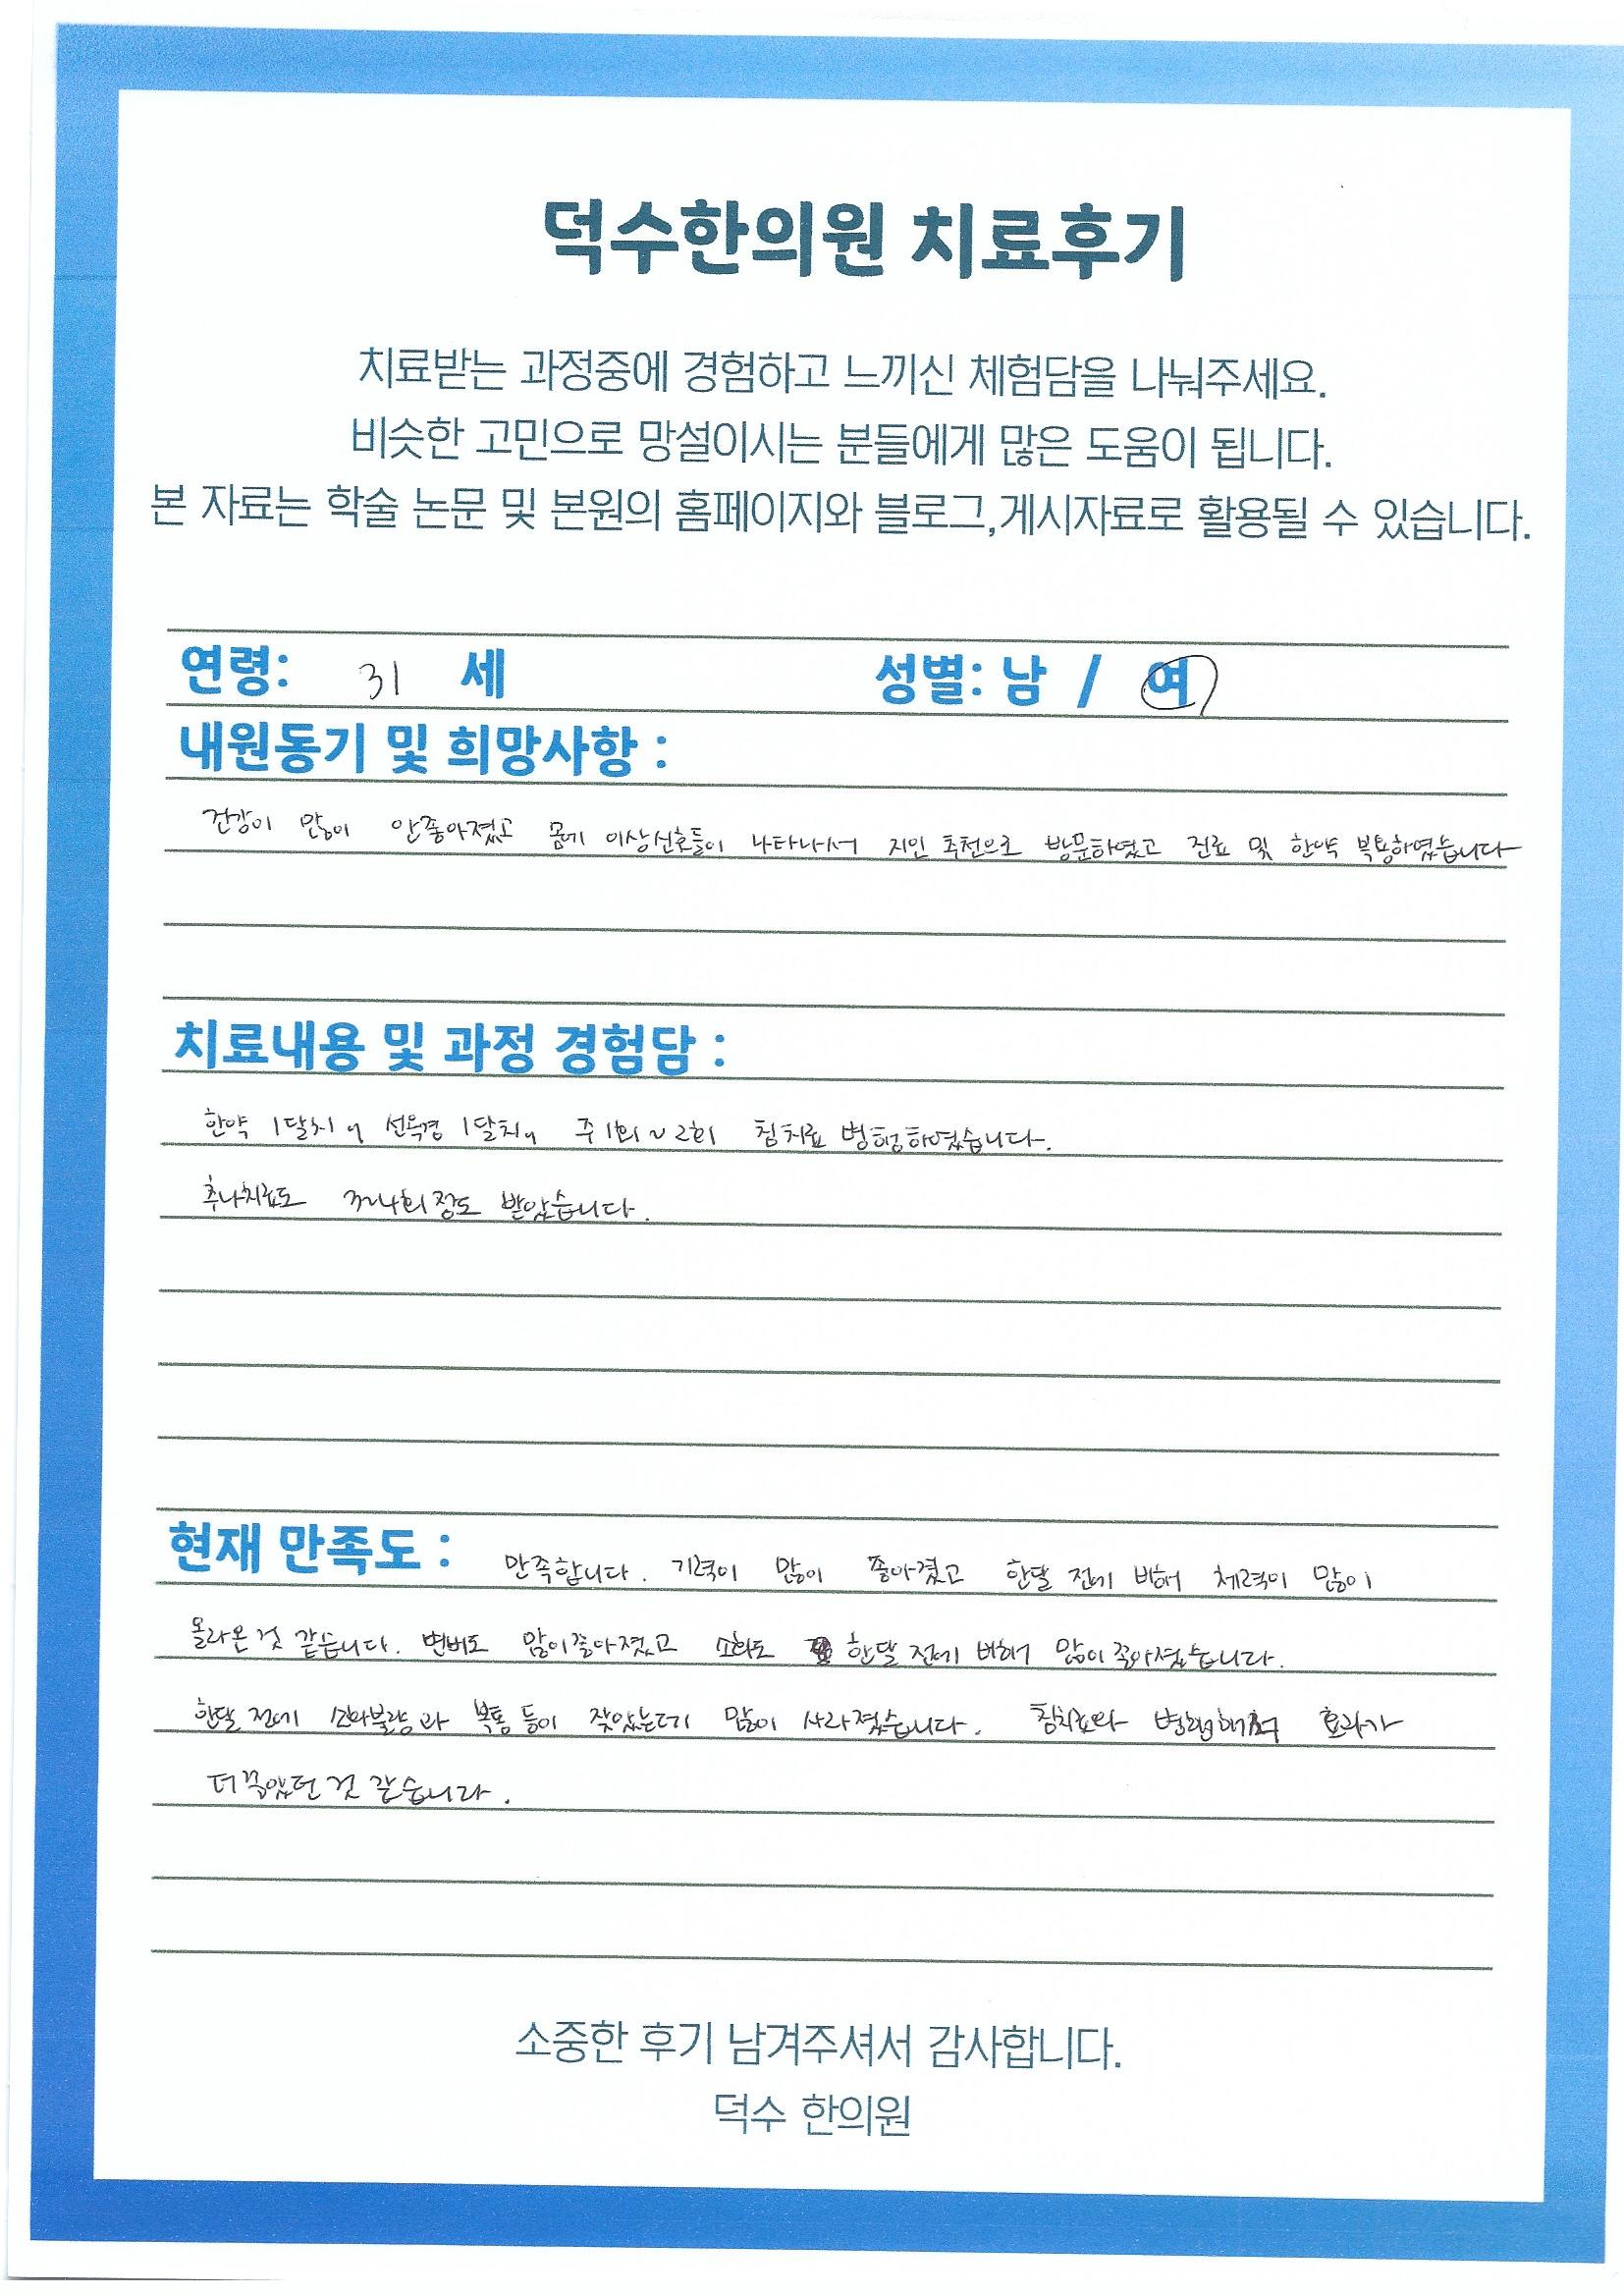 덕수한의원 치료후기
치료받는 과정중에 경험하고 느끼신 체험담을 나눠주세요.
비슷한 고민으로 망설이시는 분들에게 많은 도움이 됩니다.
본 자료는 학술 논문 및 본원의 홈페이지와 블로그,게시자료로 활용될 수 있습니다.
연령: 31 세 성별: 남 / 여
내원동기 및 희망사항 :
건강이 많이 안좋아졌고 몸에 이상신호들이 나타나서 지인 추천으로 방문하였고 진료 및 한약 복용하였습니다
치료내용 및 과정 경험담 :
한약 1달치, 선옥경 1달치, 주 1회~2회 침치료 병행하였습니다.
추나치료도 3~4회 정도 받았습니다.
현재 만족도 : 만족합니다. 기력이 많이 좋아졌고 한달 전에 비해 체력이 많이
올라온 것 같습니다. 변비도 많이 좋아졌고 소화도 한달 전에 비해 많이 좋아졌습니다.
한달 전에 소화불량과 복통 등이 잦았는데 많이 사라졌습니다. 침치료와 병행해서 효과가
더 좋았던 것 같습니다.
소중한 후기 남겨주셔서 감사합니다.
덕수 한의원